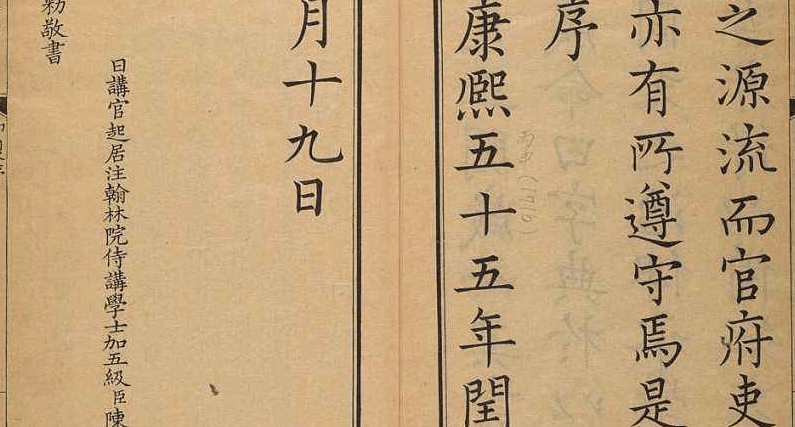 之源流而官府吏
亦有所遵守焉是
序
康熙五十五年閏
月十九日
日講官起居注翰林院侍講學士加五級臣陳
勑敬書